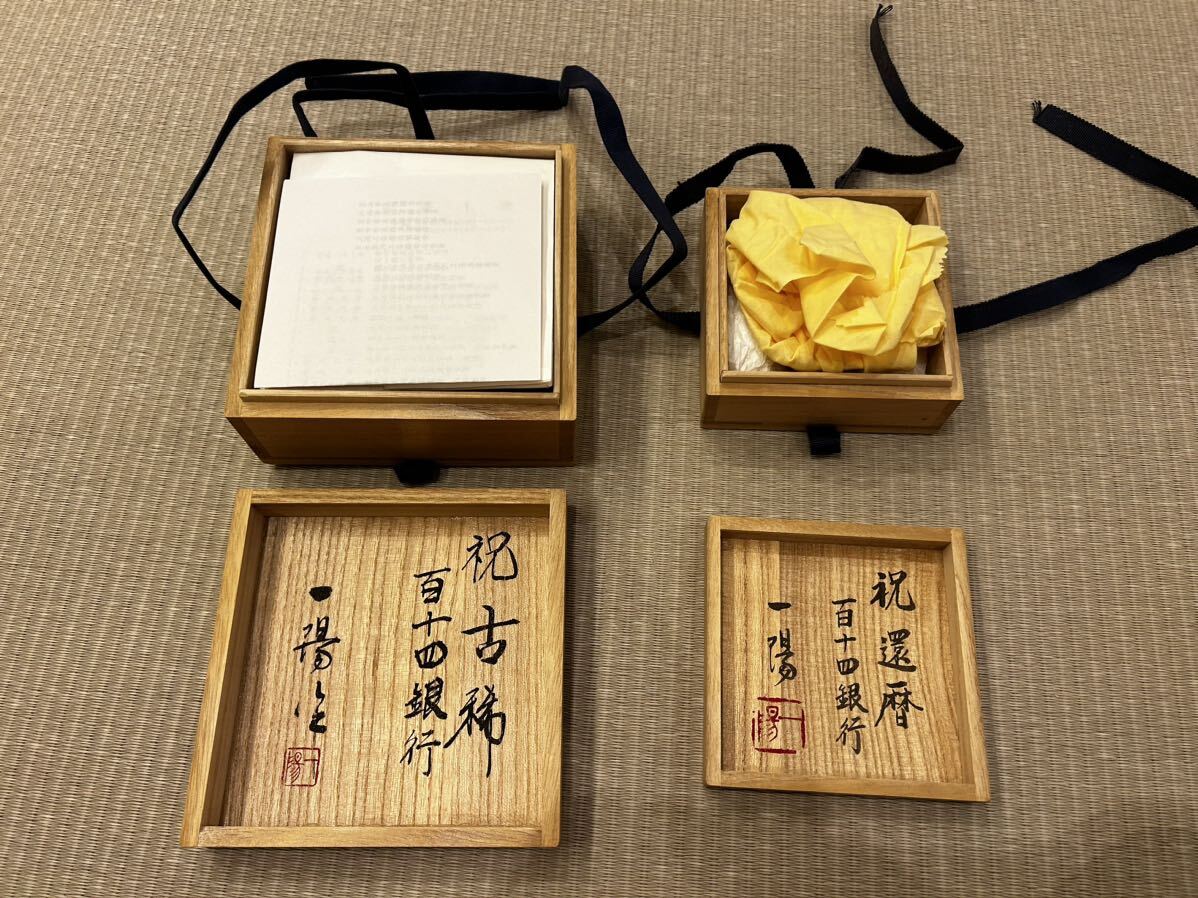 祝古稀
百十四銀行
一陽
一陽
祝還暦
百十四銀行
一陽
一陽